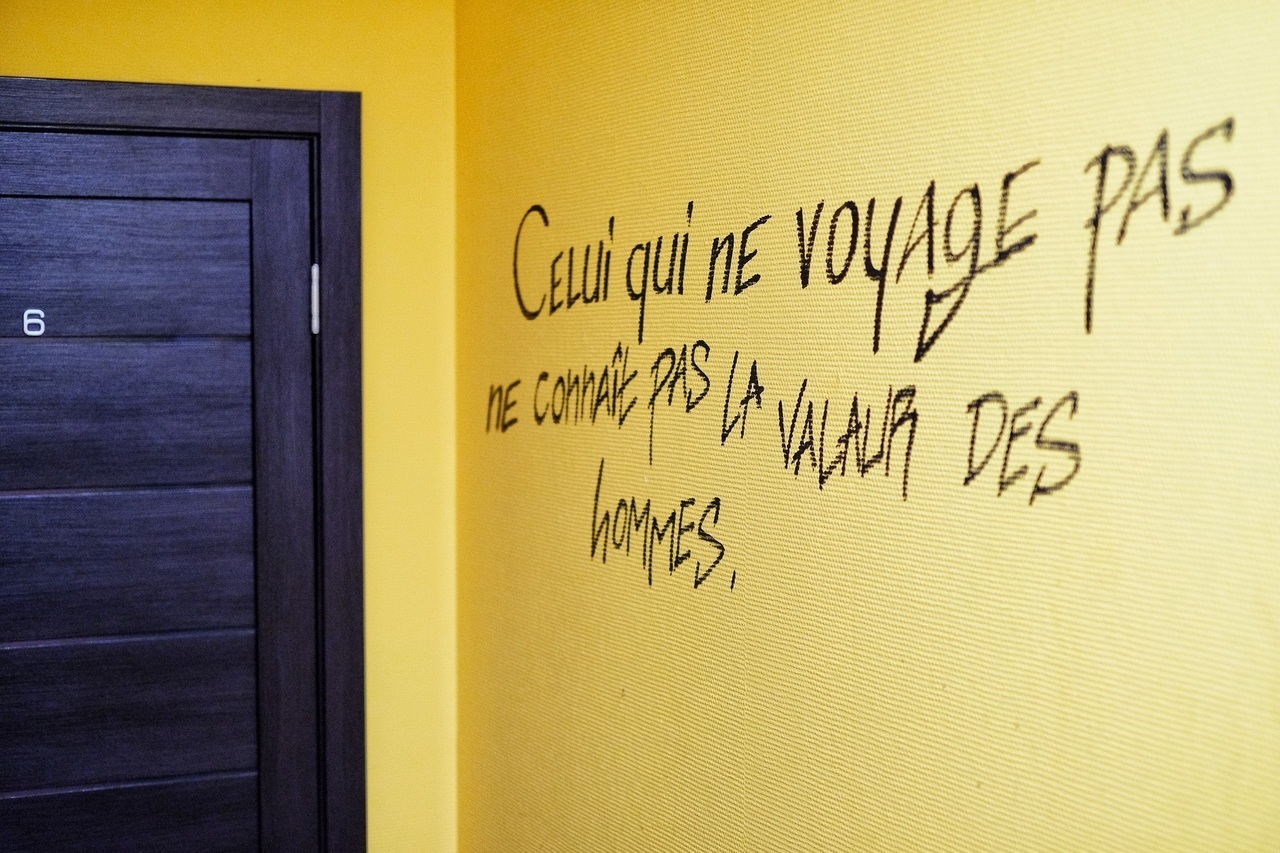 6
Celui qui ne voyage pas
ne connaît pas la valaur des
hommes.